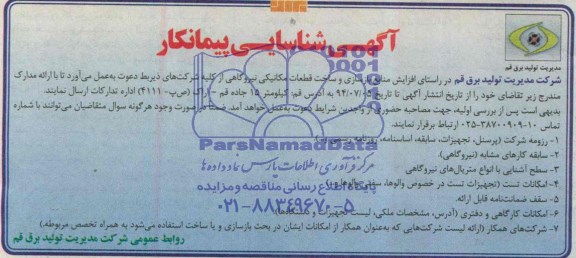 آگهی شناسایی پیمانکار
مدیریت تولید برق قم
شرکت مدیریت تولید برق قم در راستای افزایش منابع بازسازی و ساخت قطعات مکانیکی نیروگاهی از کلیه شرکت‌های ذیربط دعوت به‌عمل می‌آورد تا با ارائه مدارک
مندرج زیر تقاضای خود را از تاریخ انتشار آگهی تا تاریخ ۹۴/۰۷/۰۵ به آدرس قم: کیلومتر ۱۵ جاده قم - اراک (ص‌پ- ۴۱۱۱) اداره تدارکات ارسال نمایند.
بدیهی است پس از بررسی اولیه، جهت مصاحبه حضوری از واجدین شرایط دعوت به‌عمل خواهد آمد. ضمنا در صورت وجود هرگونه سوال متقاضیان می‌توانند با شماره
تماس ۱۰-۳۸۷۰۰۹۰۹-۰۲۵ ارتباط برقرار نمایند.
۱- رزومه شرکت (پرسنل، تجهیزات، سابقه، اساسنامه، روزنامه رسمی و
۲- سابقه کارهای مشابه (نیروگاهی).
۳- سطح آشنایی با انواع متریال‌های نیروگاهی
۴- امکانات تست (تجهیزات تست در خصوص والوها،
۵- سقف ضمانت‌نامه قابل ارائه.
۶- امکانات کارگاهی و دفتری (آدرس، مشخصات ملکی، لیست تجهیزات و
۷- شرکت‌های همکار (ارائه لیست شرکت‌هایی که به‌عنوان همکار از امکانات ایشان در بحث بازسازی و یا ساخت استفاده می‌شود به همراه تخصص مربوطه.)
روابط عمومی شرکت مدیریت تولید برق قم
ParsNamadData
مرکز فرآوری اطلاعات پارس نماد داده‌ها
پایگاه اطلاع رسانی مناقصه و مزایده
۰۲۱-۸۸۳۴۹۶۷۰-۵